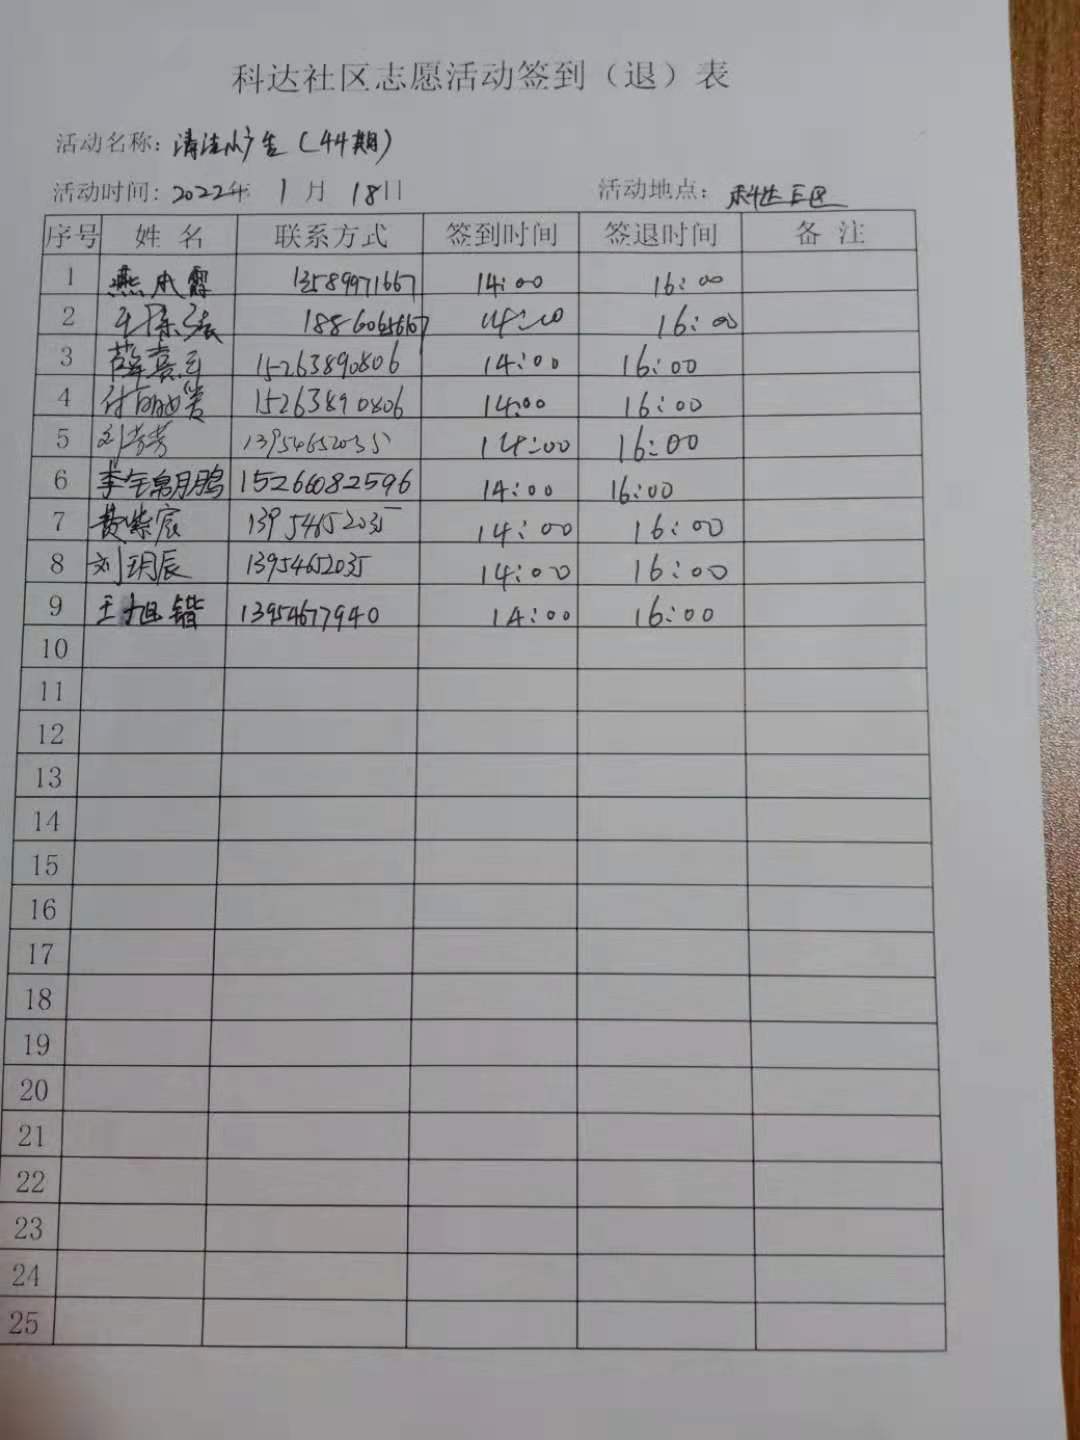 科达社区志愿活动签到（退）表
活动名称：清洁小广告（44期）
活动时间：2022年 1 月 18日 活动地点：科达E区
序号 姓 名 联系方式 签到时间 签退时间 备 注
1 燕 霞 13589971667 14:00 16:00
2 16:00
3 薛 15263890806 14:00 16:00
4 付 15263890806 14:00 16:00
5 刘芳芳 13954652035 14:00 16:00
6 李 鹏 15266082596 14:00 16:00
7 黄紫宸 13954652035 14:00 16:00
8 刘玥辰 13954652035 14:00 16:00
9 王旭锴 13954677940 14:00 16:00
10
11
12
13
14
15
16
17
18
19
20
21
22
23
24
25